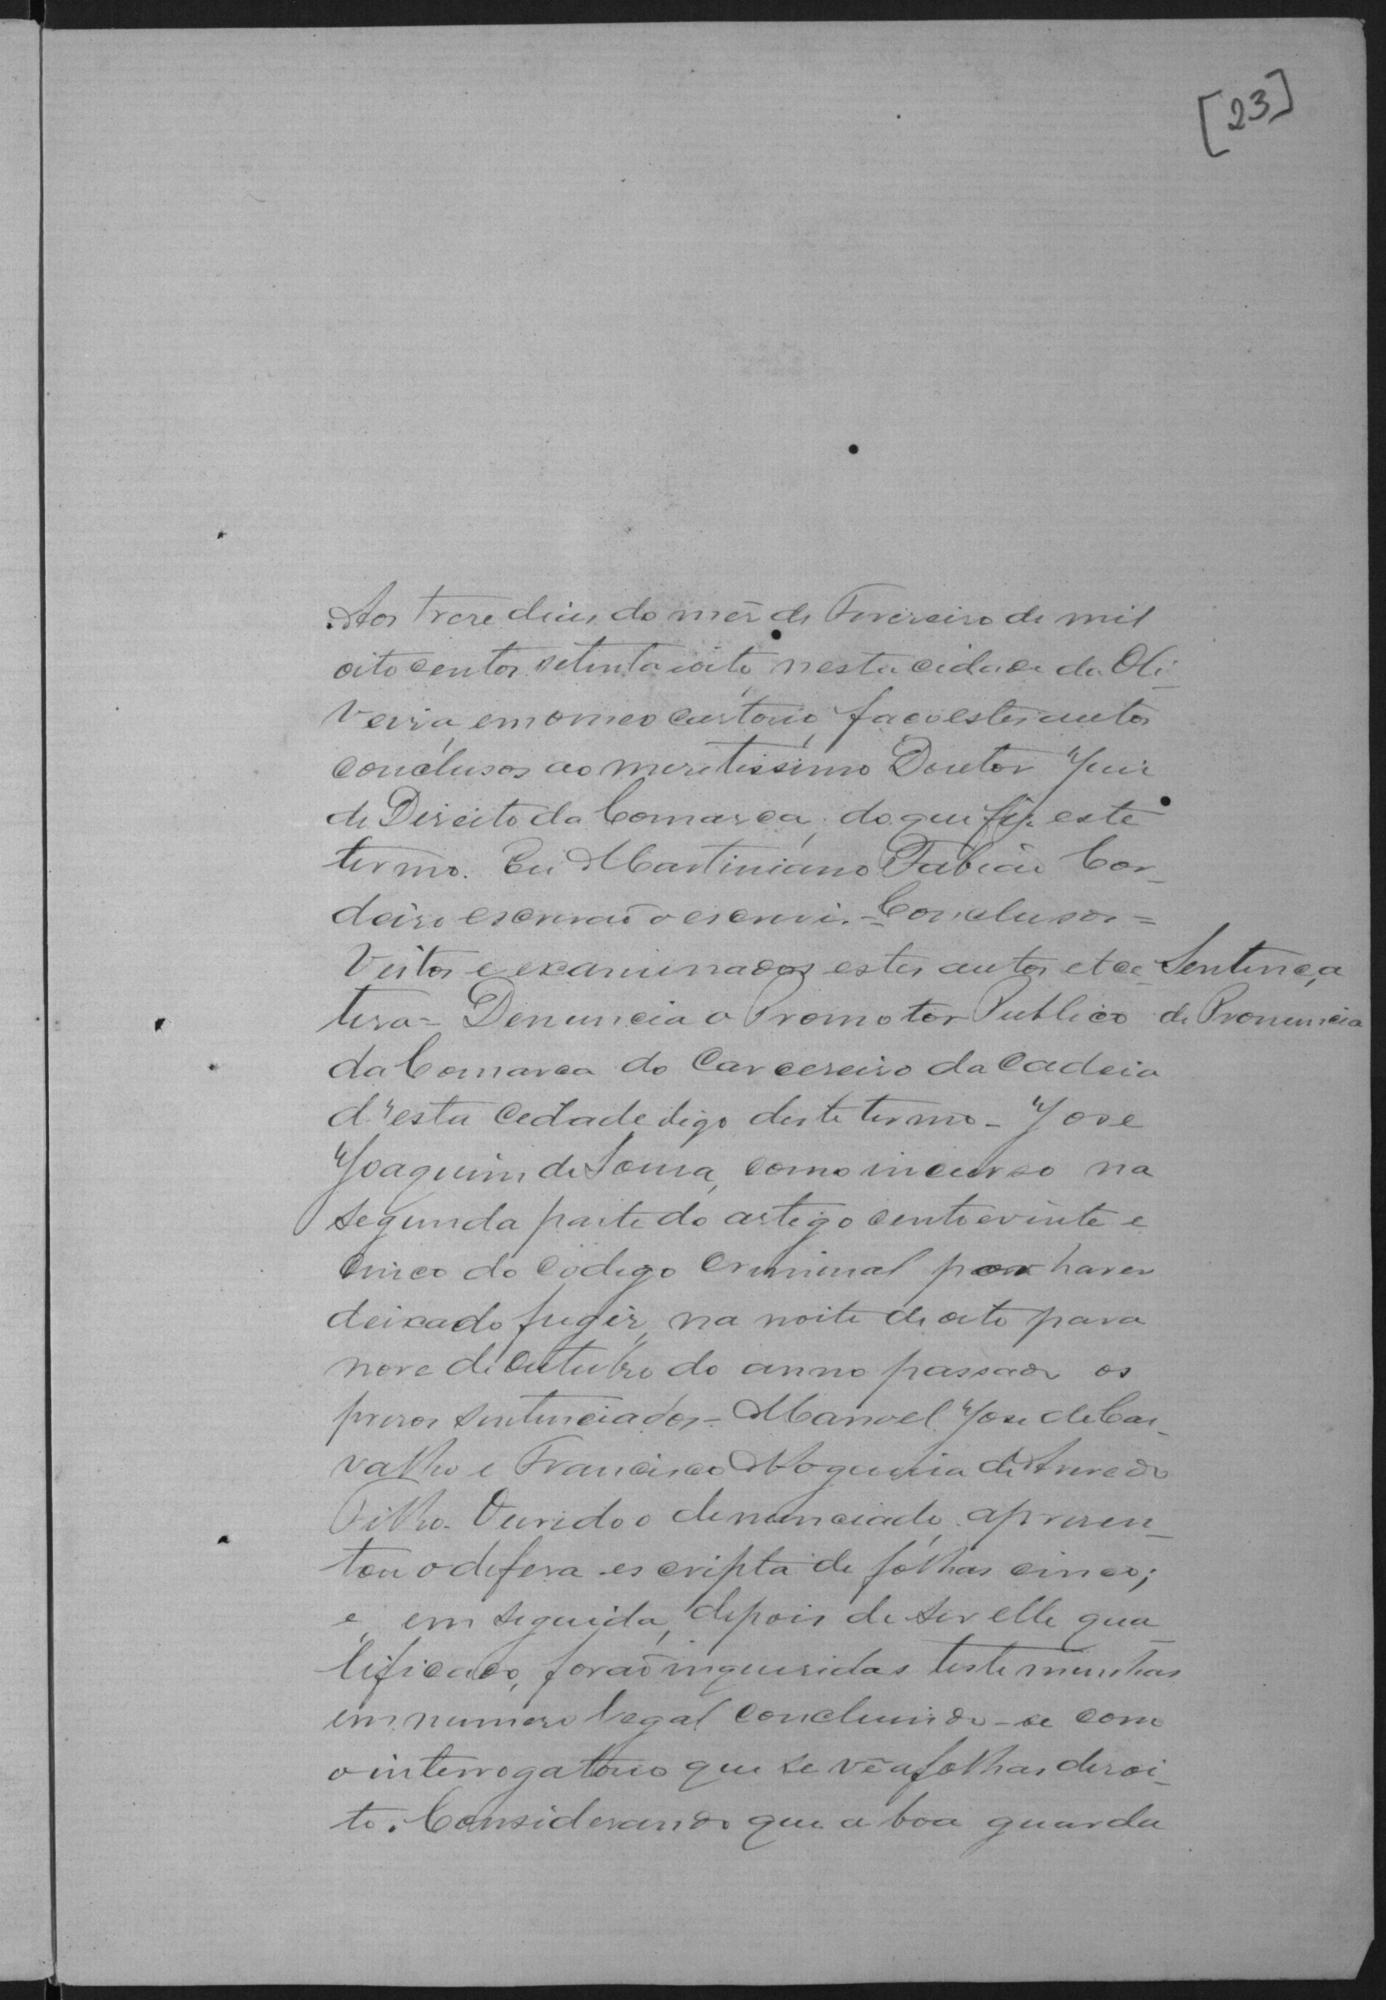 [23]
Aos treze dias do mez de Fevereiro de mil
oito centos setenta e oito nesta cidade da Oli-
veira, em o meo cartorio, faço estes autos
conclusos ao meretissimo Doutor Juiz
de Direito da Comarca, do que fiz este
termo. Eu Martiniano Fabião Cor-
deiro escrivaõ o escrevi. - Conclusos =
Vistos e examinados estes autos et ce-
tera = Denuncia o Promotor Publico
Sentença
de Pronuncia
da Comarca do Carcereiro da Cadeia
d'esta Cidade digo deste termo - José
Joaquim de Sousa, como incurso na
segunda parte do artigo cento e vinte e
cinco do codigo Criminal por haver
deixado fugir, na noite de oito para
nove de Outubro do anno passado os
presos sentenciados = Manoel José de Car-
valho e Francisco Nogueira de Azevedo
Filho. Ouvido o denunciado, apresen-
tou o defesa escripta de folhas cinco;
e, em seguida, depois de ser elle qua-
lificado, foraõ inqueridas testemunhas
em numero legal concluindo-se com
o interrogatorio que se vê a folhas dezoi-
to. Considerando que a boa guarda